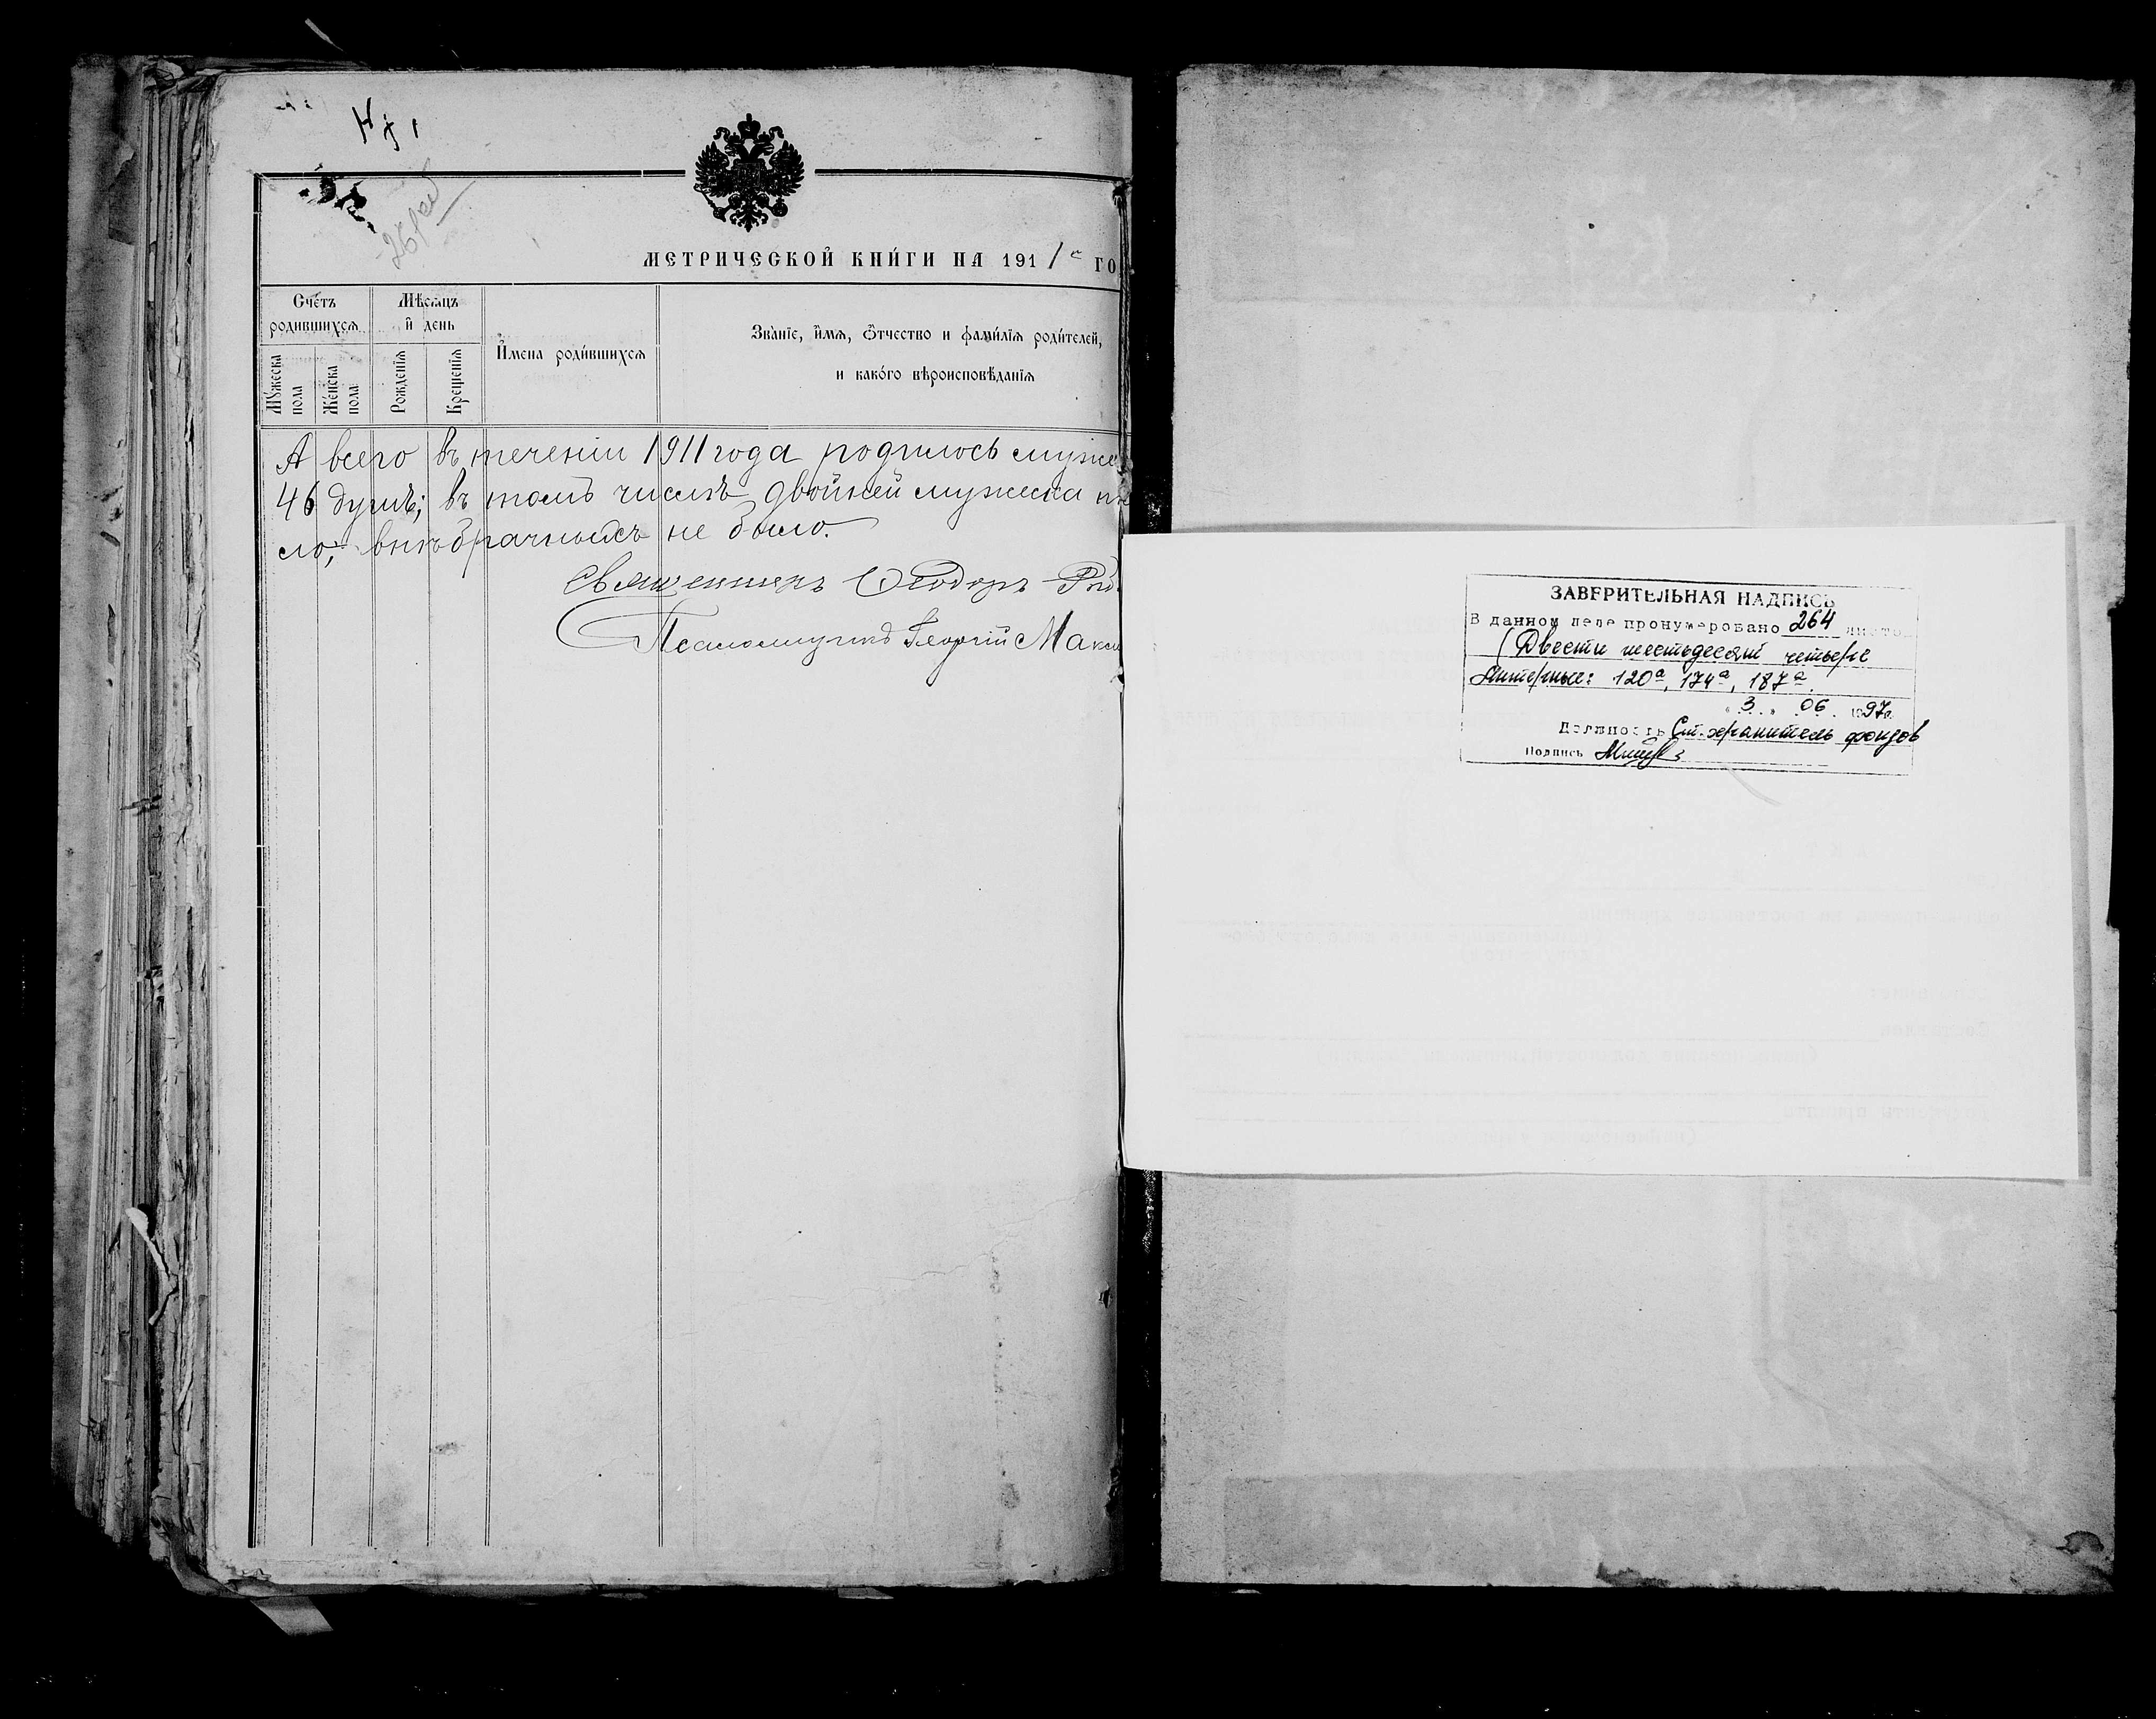 МЕТРИЧЕСКОЙ КНИГИ НА 1911 ГО
Счетъ родившихся
Мѣсяцъ и день
Имена родившихся
Званіе, имя, отчество и фамилія родителей,
и какого вѣроисповѣданія
Мужеска пола
Женска пола
Рожденія
Крещенія
А всего въ теченіи 1911 года родилось муже
46 душъ; въ томъ числѣ двойней мужеска
ло; внѣбрачныхъ не было.
Священникъ Ѳеодоръ
Псаломщикъ Георгій Макси
ЗАВЕРИТЕЛЬНАЯ НАДПИСЬ
В данном деле пронумеровано 264 листо
(Двести шестьдесят четыре
Литерные: 120а, 174а, 187а.
"3" 06. 1997г.
Должность Ст. хранитель фондов
Подпись